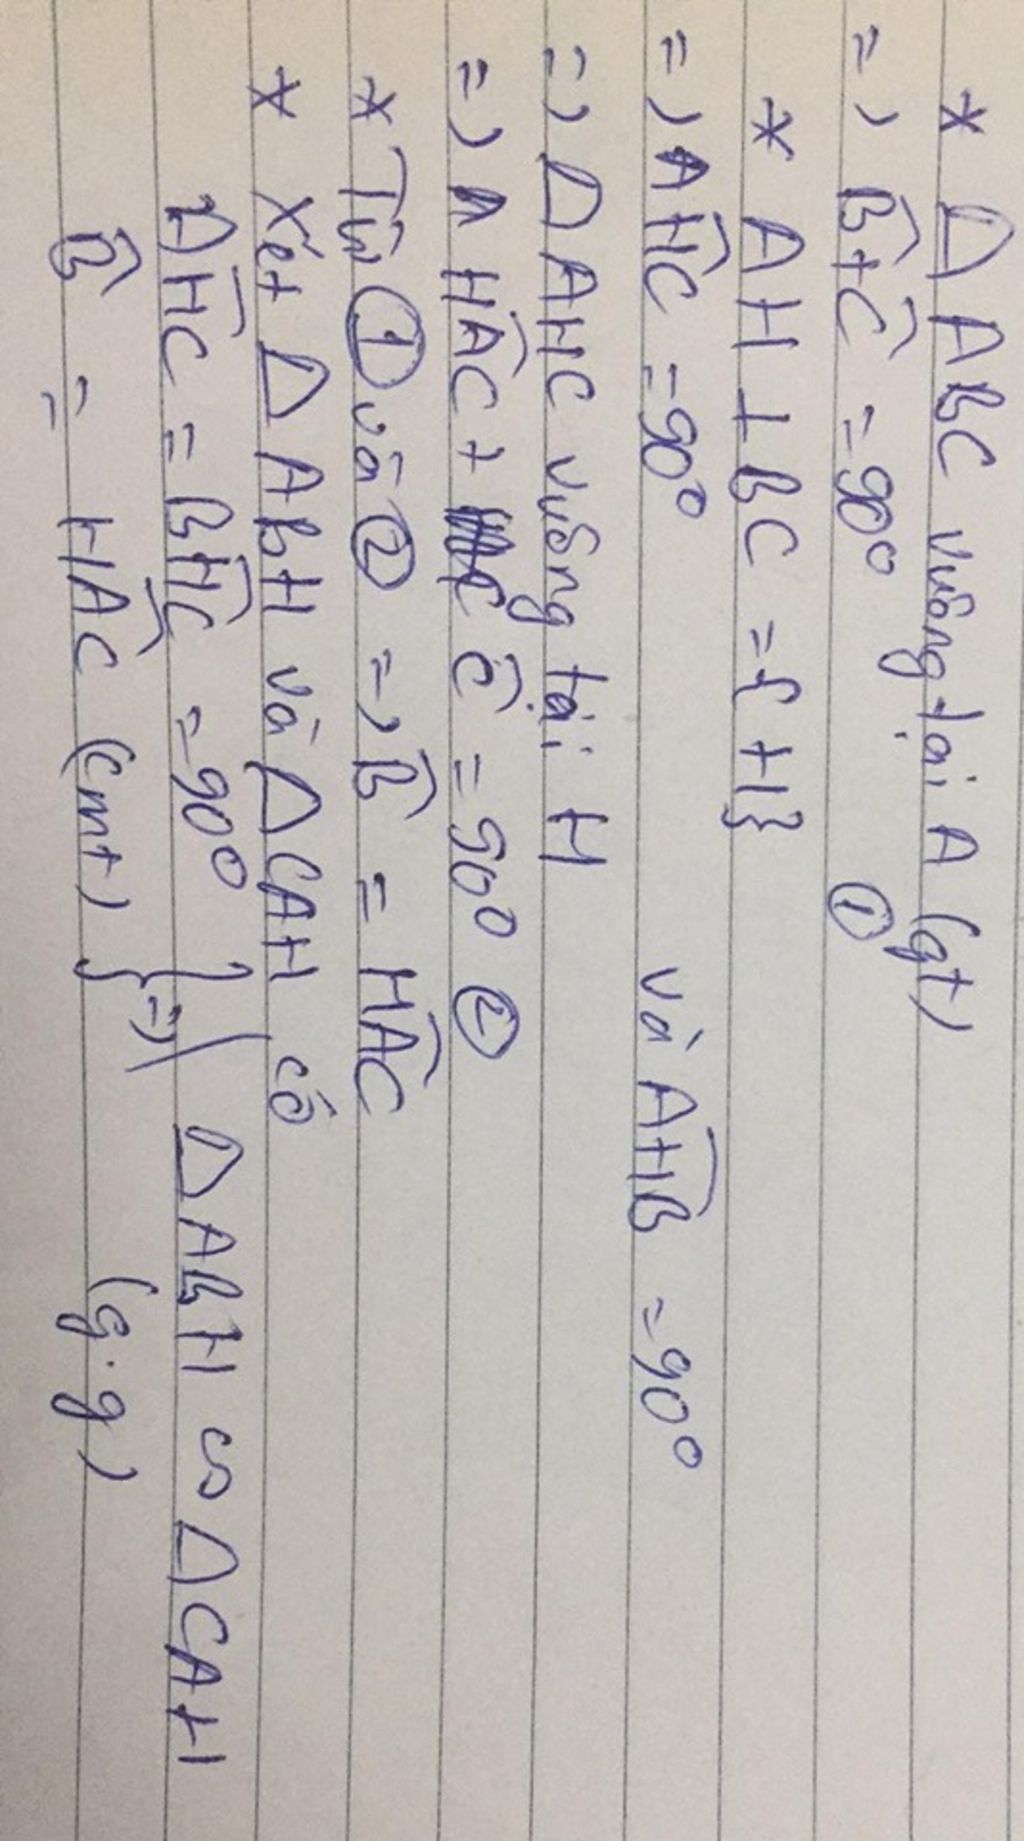 * Δ ABC vuông tại A (gt)
=> B̂+Ĉ = 90° ①
* AH ⊥ BC = {H}
=> AĤC = 90° và AĤB = 90°
=> Δ AHC vuông tại H
=> HÂC + Ĉ = 90° ②
* Từ ① và ② => B̂ = HÂC
* Xét Δ ABH và Δ CAH có
AĤC = BĤC = 90° } => Δ ABH ∽ Δ CAH
B̂ = HÂC (cmt) } (g.g)